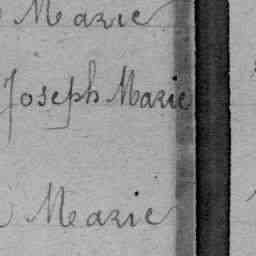 Marie
Joseph Marie
Marie